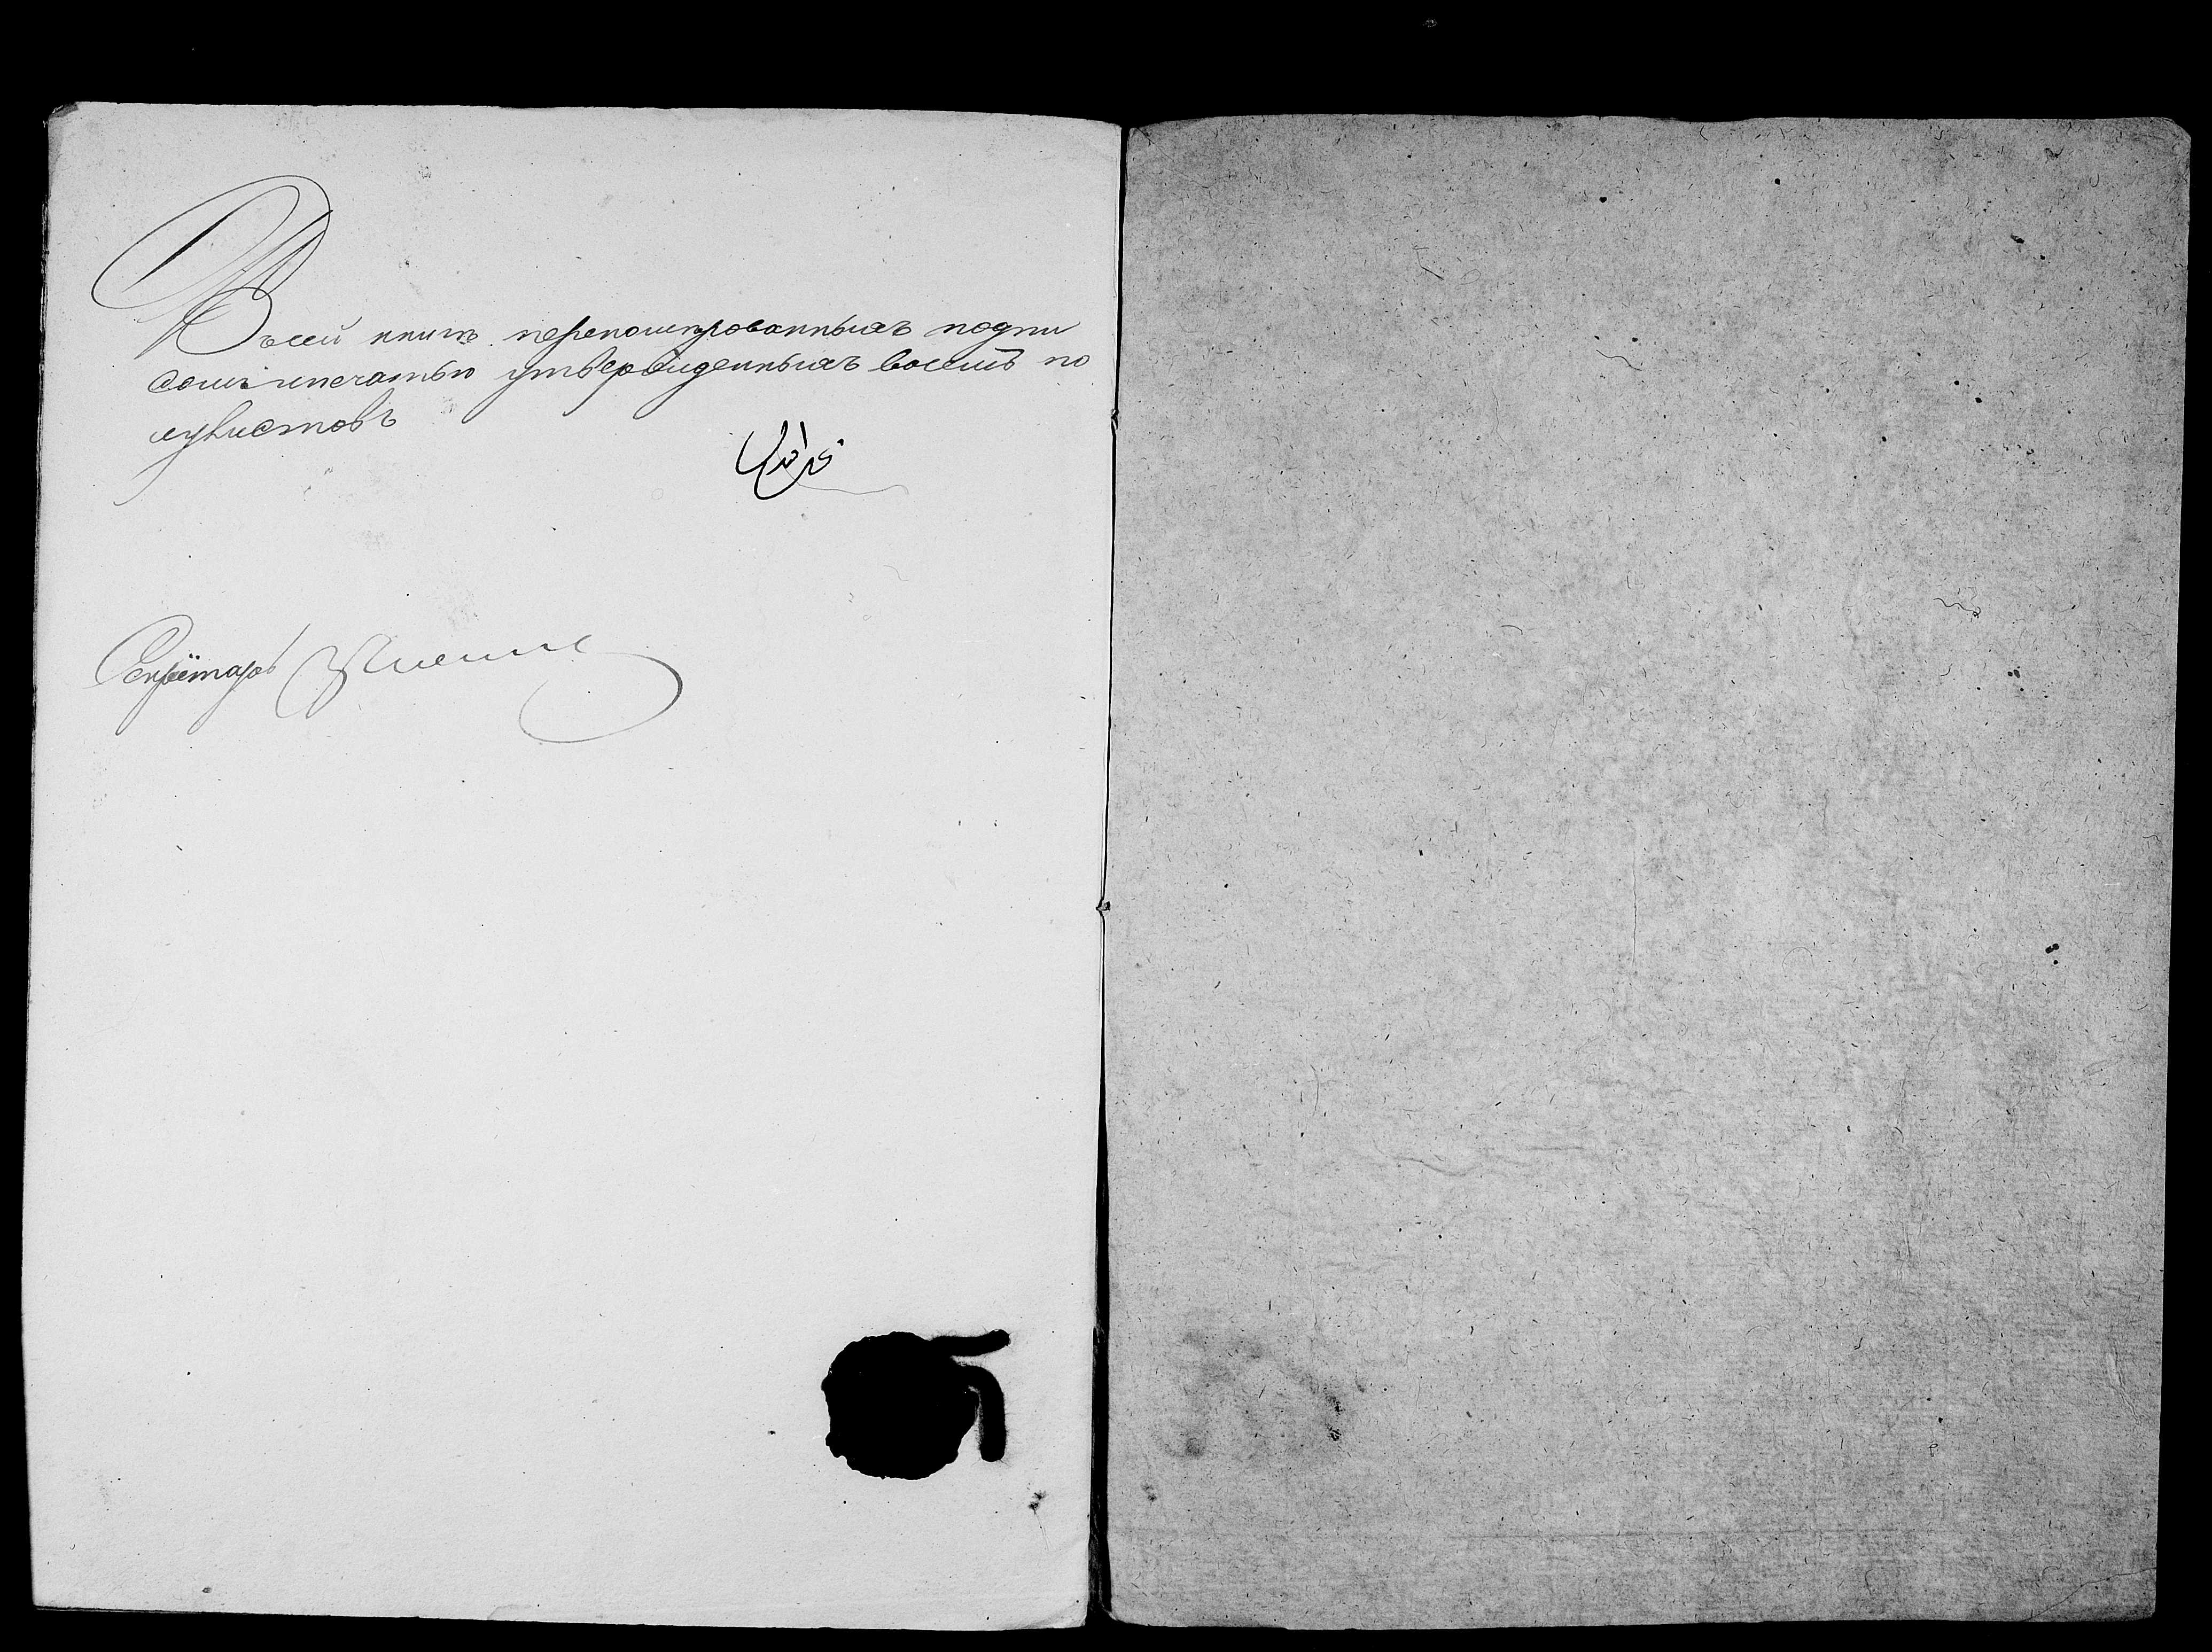 Въсей книгѣ перепомерованныхъ подпи
сомъ ипечатью утвержденныхъ восемь по
лулистовъ
Секрѣтарь